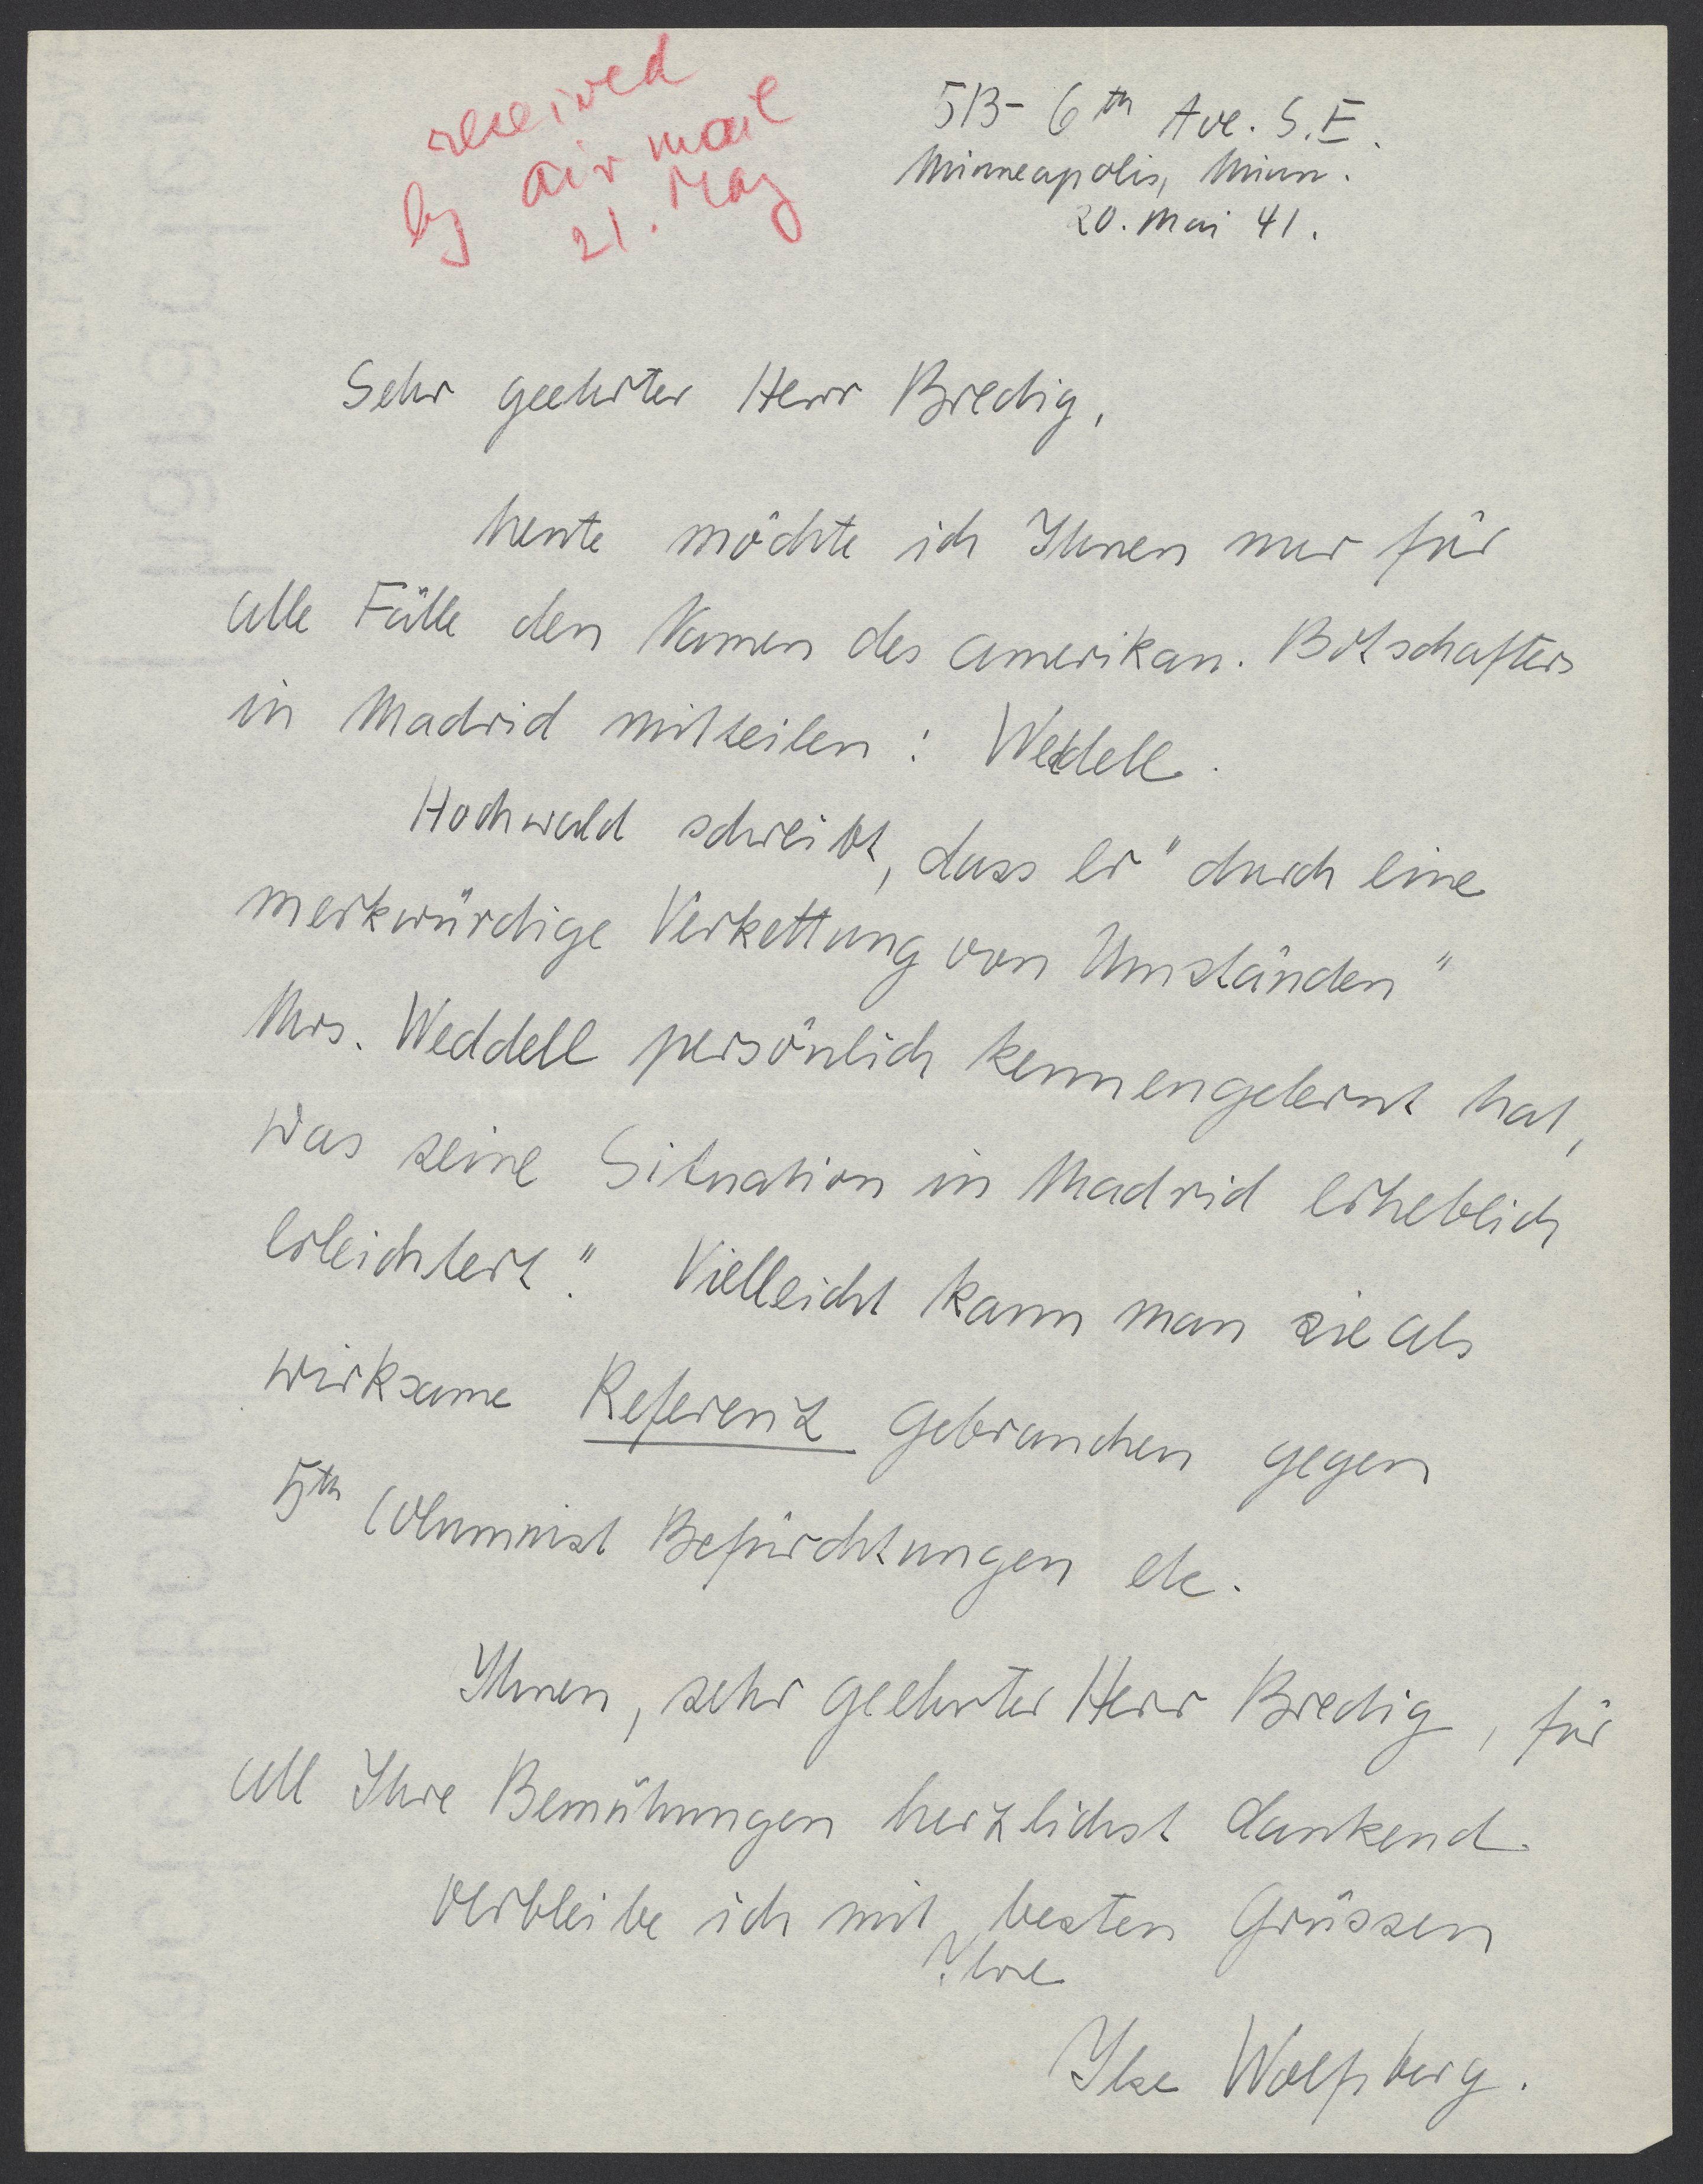 received
by air mail
21. May
513- 6th Ave. S.E.
Minneapolis, Minn.
20. Mai 41.
Sehr geehrter Herr Bredig,
heute möchte ich Ihnen nur für
alle Fälle den Namen des amerikan. Botschafters
in Madrid mitteilen: Weddell.
Hochwald schreibt, dass er "durch eine
merkwürdige Verkettung von Umständen"
Mrs. Weddell persönlich kennengelernt hat,
was seine Situation in Madrid erheblich
erleichtert." Vielleicht kann man sie als
wirksame Referenz gebrauchen gegen
5th Columnist Befürchtungen etc.
Ihnen, sehr geehrter Herr Bredig, für
all Ihre Bemühungen herzlichst dankend
verbleibe ich mit besten Grüssen
Ihre
Ilse Wolfsberg.